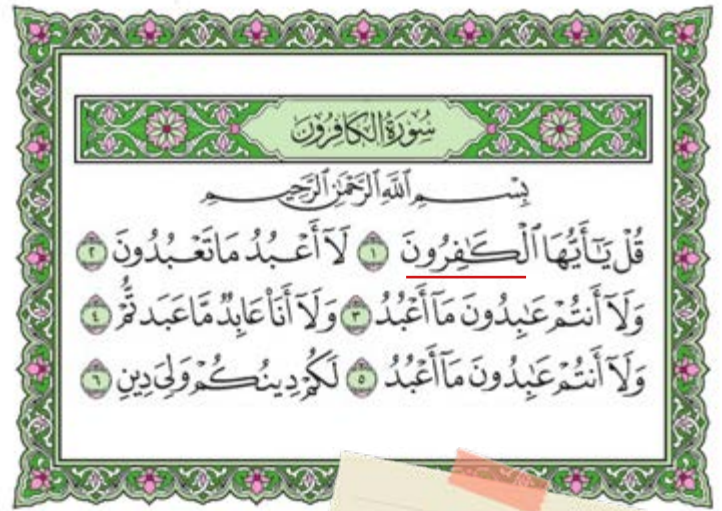 سُورَةُ الْكَافِرُونَ
بِسْمِ ٱللَّهِ ٱلرَّحْمَٰنِ ٱلرَّحِيمِ
قُلْ يَٰٓأَيُّهَا ٱلْكَٰفِرُونَ ١ لَآ أَعْبُدُ مَا تَعْبُدُونَ ٢
وَلَآ أَنتُمْ عَٰبِدُونَ مَآ أَعْبُدُ ٣ وَلَآ أَنَا۠ عَابِدٌ مَّا عَبَدتُّمْ ٤
وَلَآ أَنتُمْ عَٰبِدُونَ مَآ أَعْبُدُ ٥ لَكُمْ دِينُكُمْ وَلِيَ دِينِ ٦